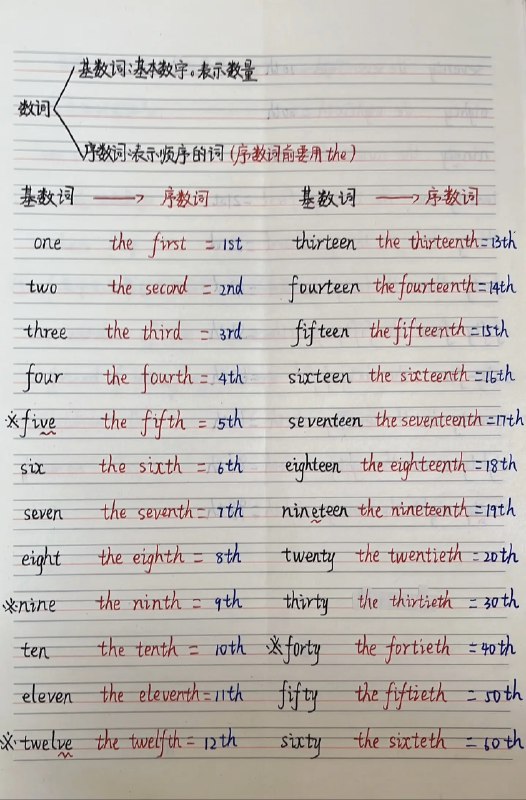 基数词:基本数字。表示数量
数词
序数词:表示顺序的词(序数词前要用the)
基数词 → 序数词 基数词 → 序数词
one the first = 1st thirteen the thirteenth=13th
two the second = 2nd fourteen the fourteenth=14th
three the third = 3rd fifteen the fifteenth=15th
four the fourth = 4th sixteen the sixteenth=16th
※five the fifth = 5th seventeen the seventeenth=17th
six the sixth = 6th eighteen the eighteenth=18th
seven the seventh = 7th nineteen the nineteenth=19th
eight the eighth = 8th twenty the twentieth=20th
※nine the ninth = 9th thirty the thirtieth=30th
ten the tenth = 10th ※forty the fortieth=40th
eleven the eleventh=11th fifty the fiftieth =50th
※twelve the twelfth=12th sixty the sixteth =60th